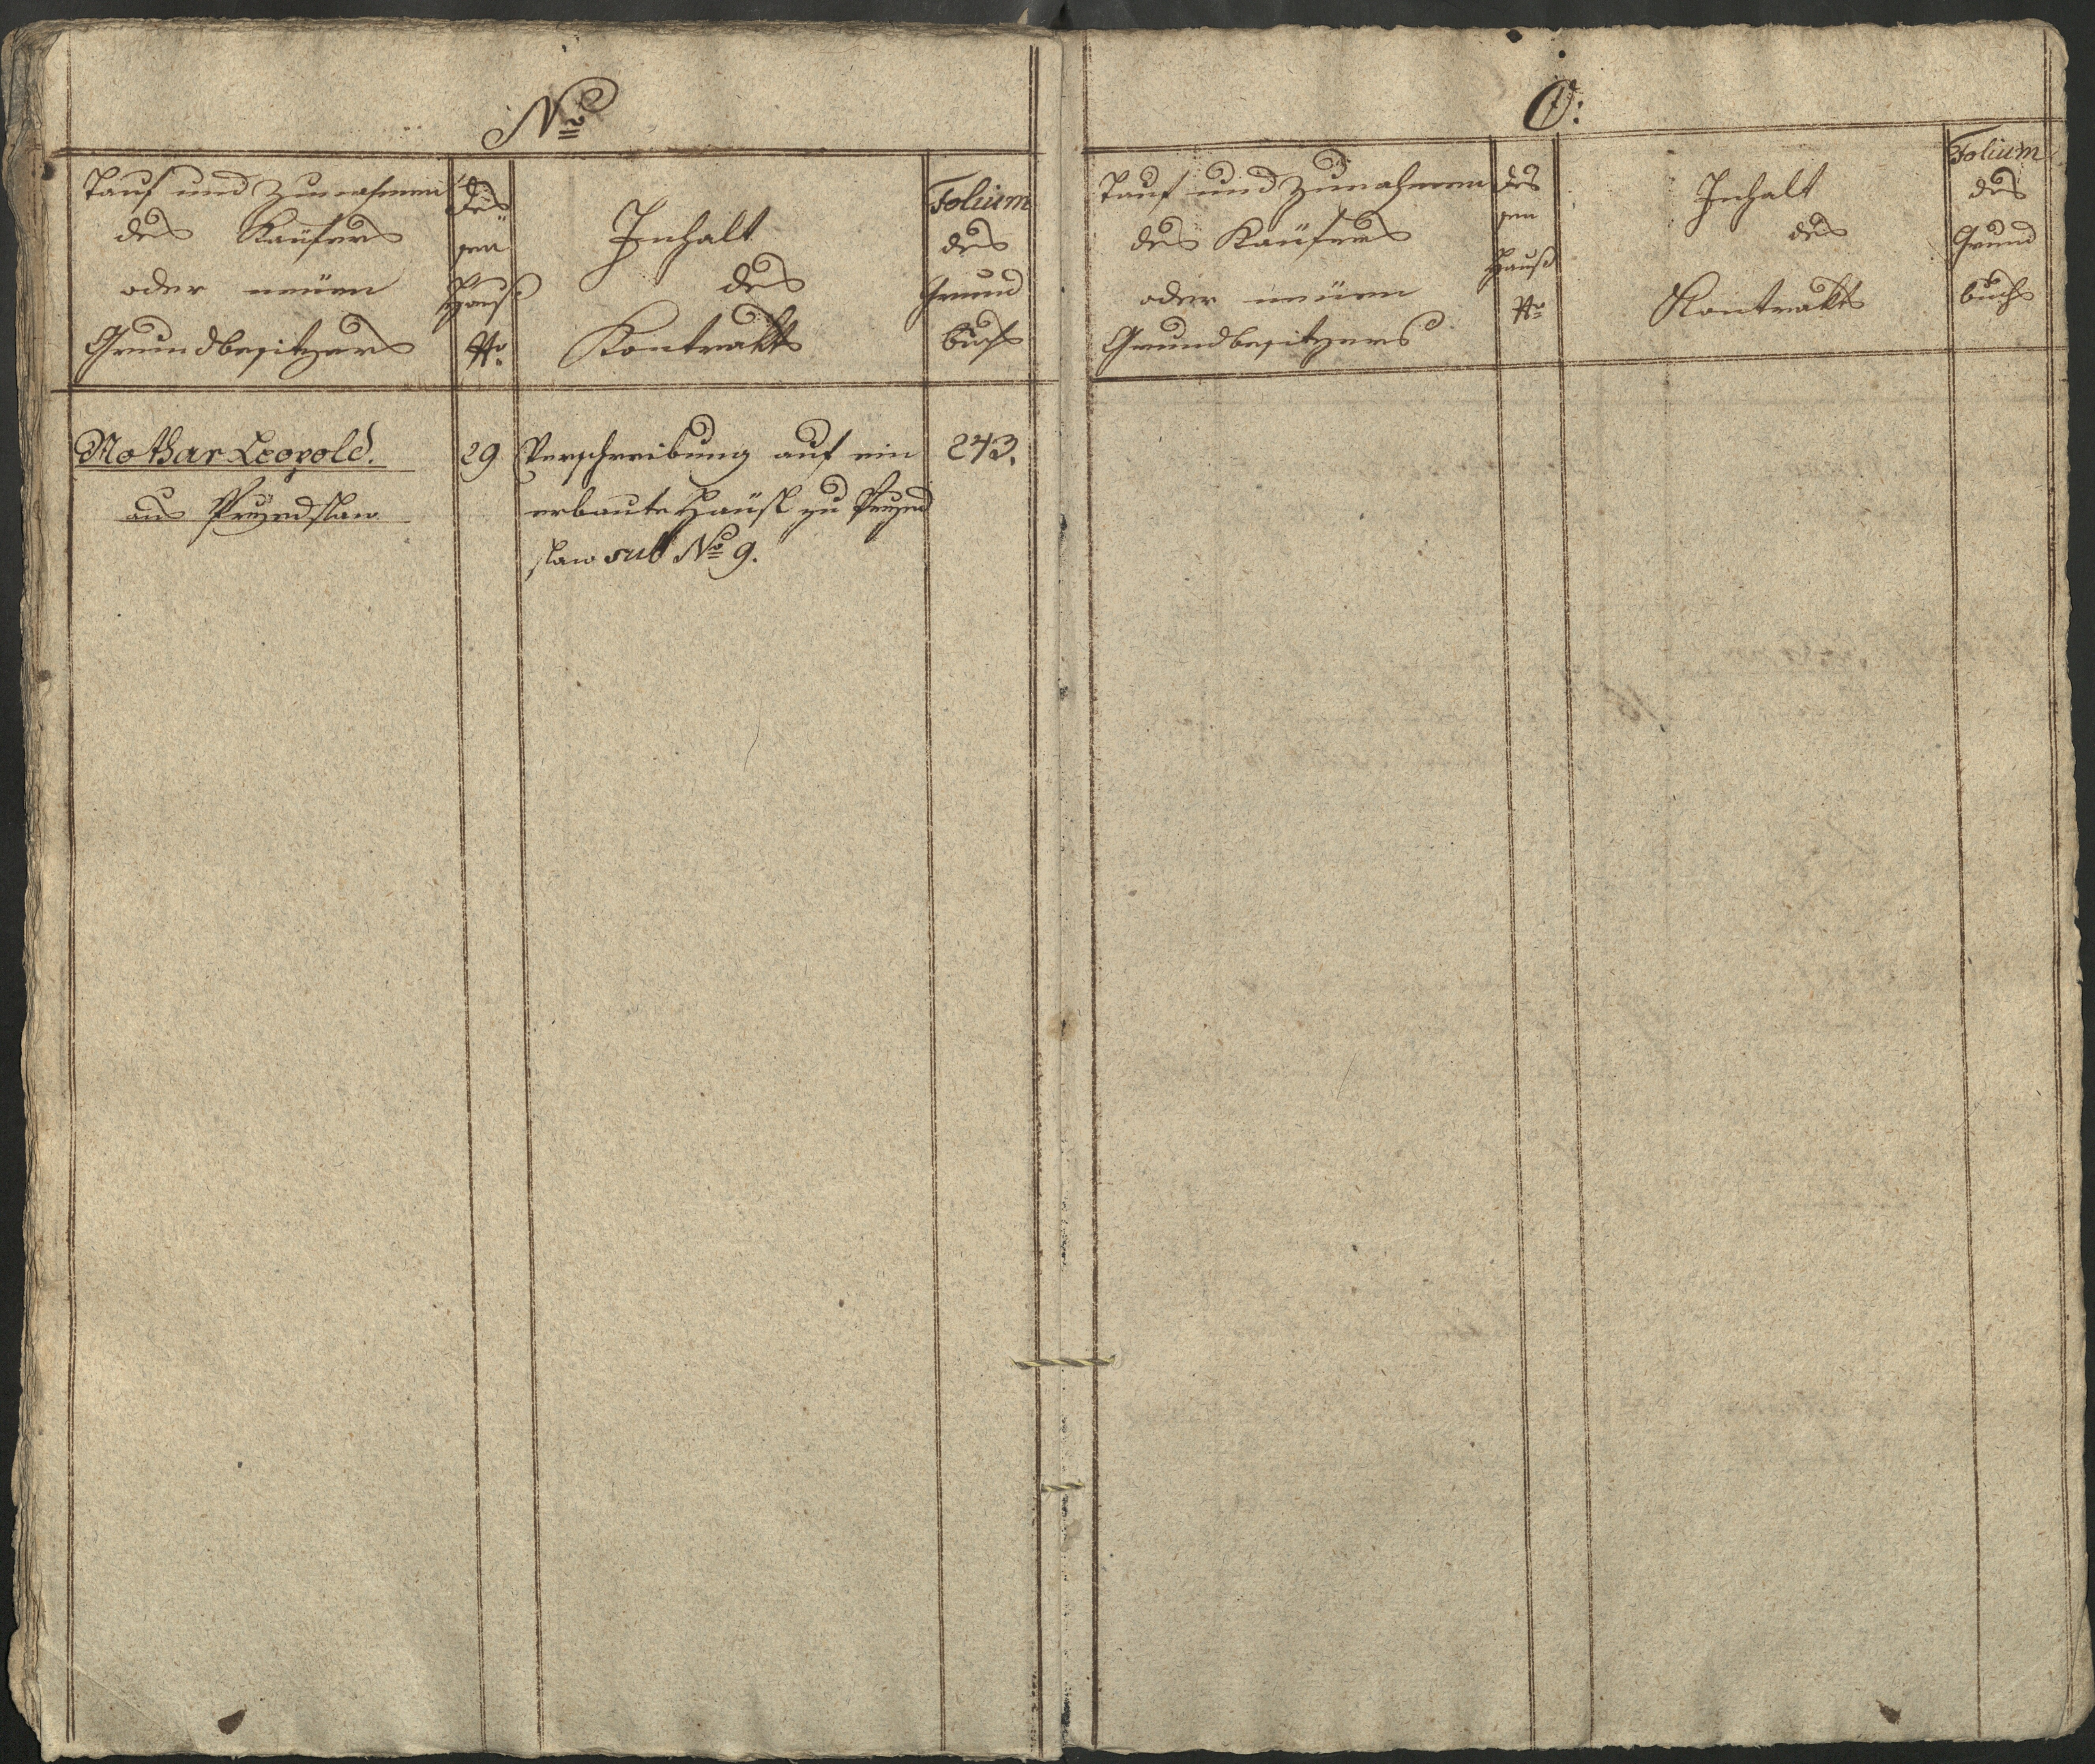 N:
Tauf und Zunahmen
des Kaüfers
oder neüen
Grundbesitzers
des
sen
Hauß
No
Inhalt
des
Kontrakts
Folium
des
Grund
buchs
Nothar Leopold.
aus Przedslaw
29
Verschreibung auf ein
erbaute Haüsl zu Przed
slaw sub No 9.
243.
O:
Tauf und Zunahmen
des Kaüfers
oder neüen
Grundbesitzers
des
sen
Hauß
No
Inhalt
des
Kontrakts
Folium
des
Grund
buchs